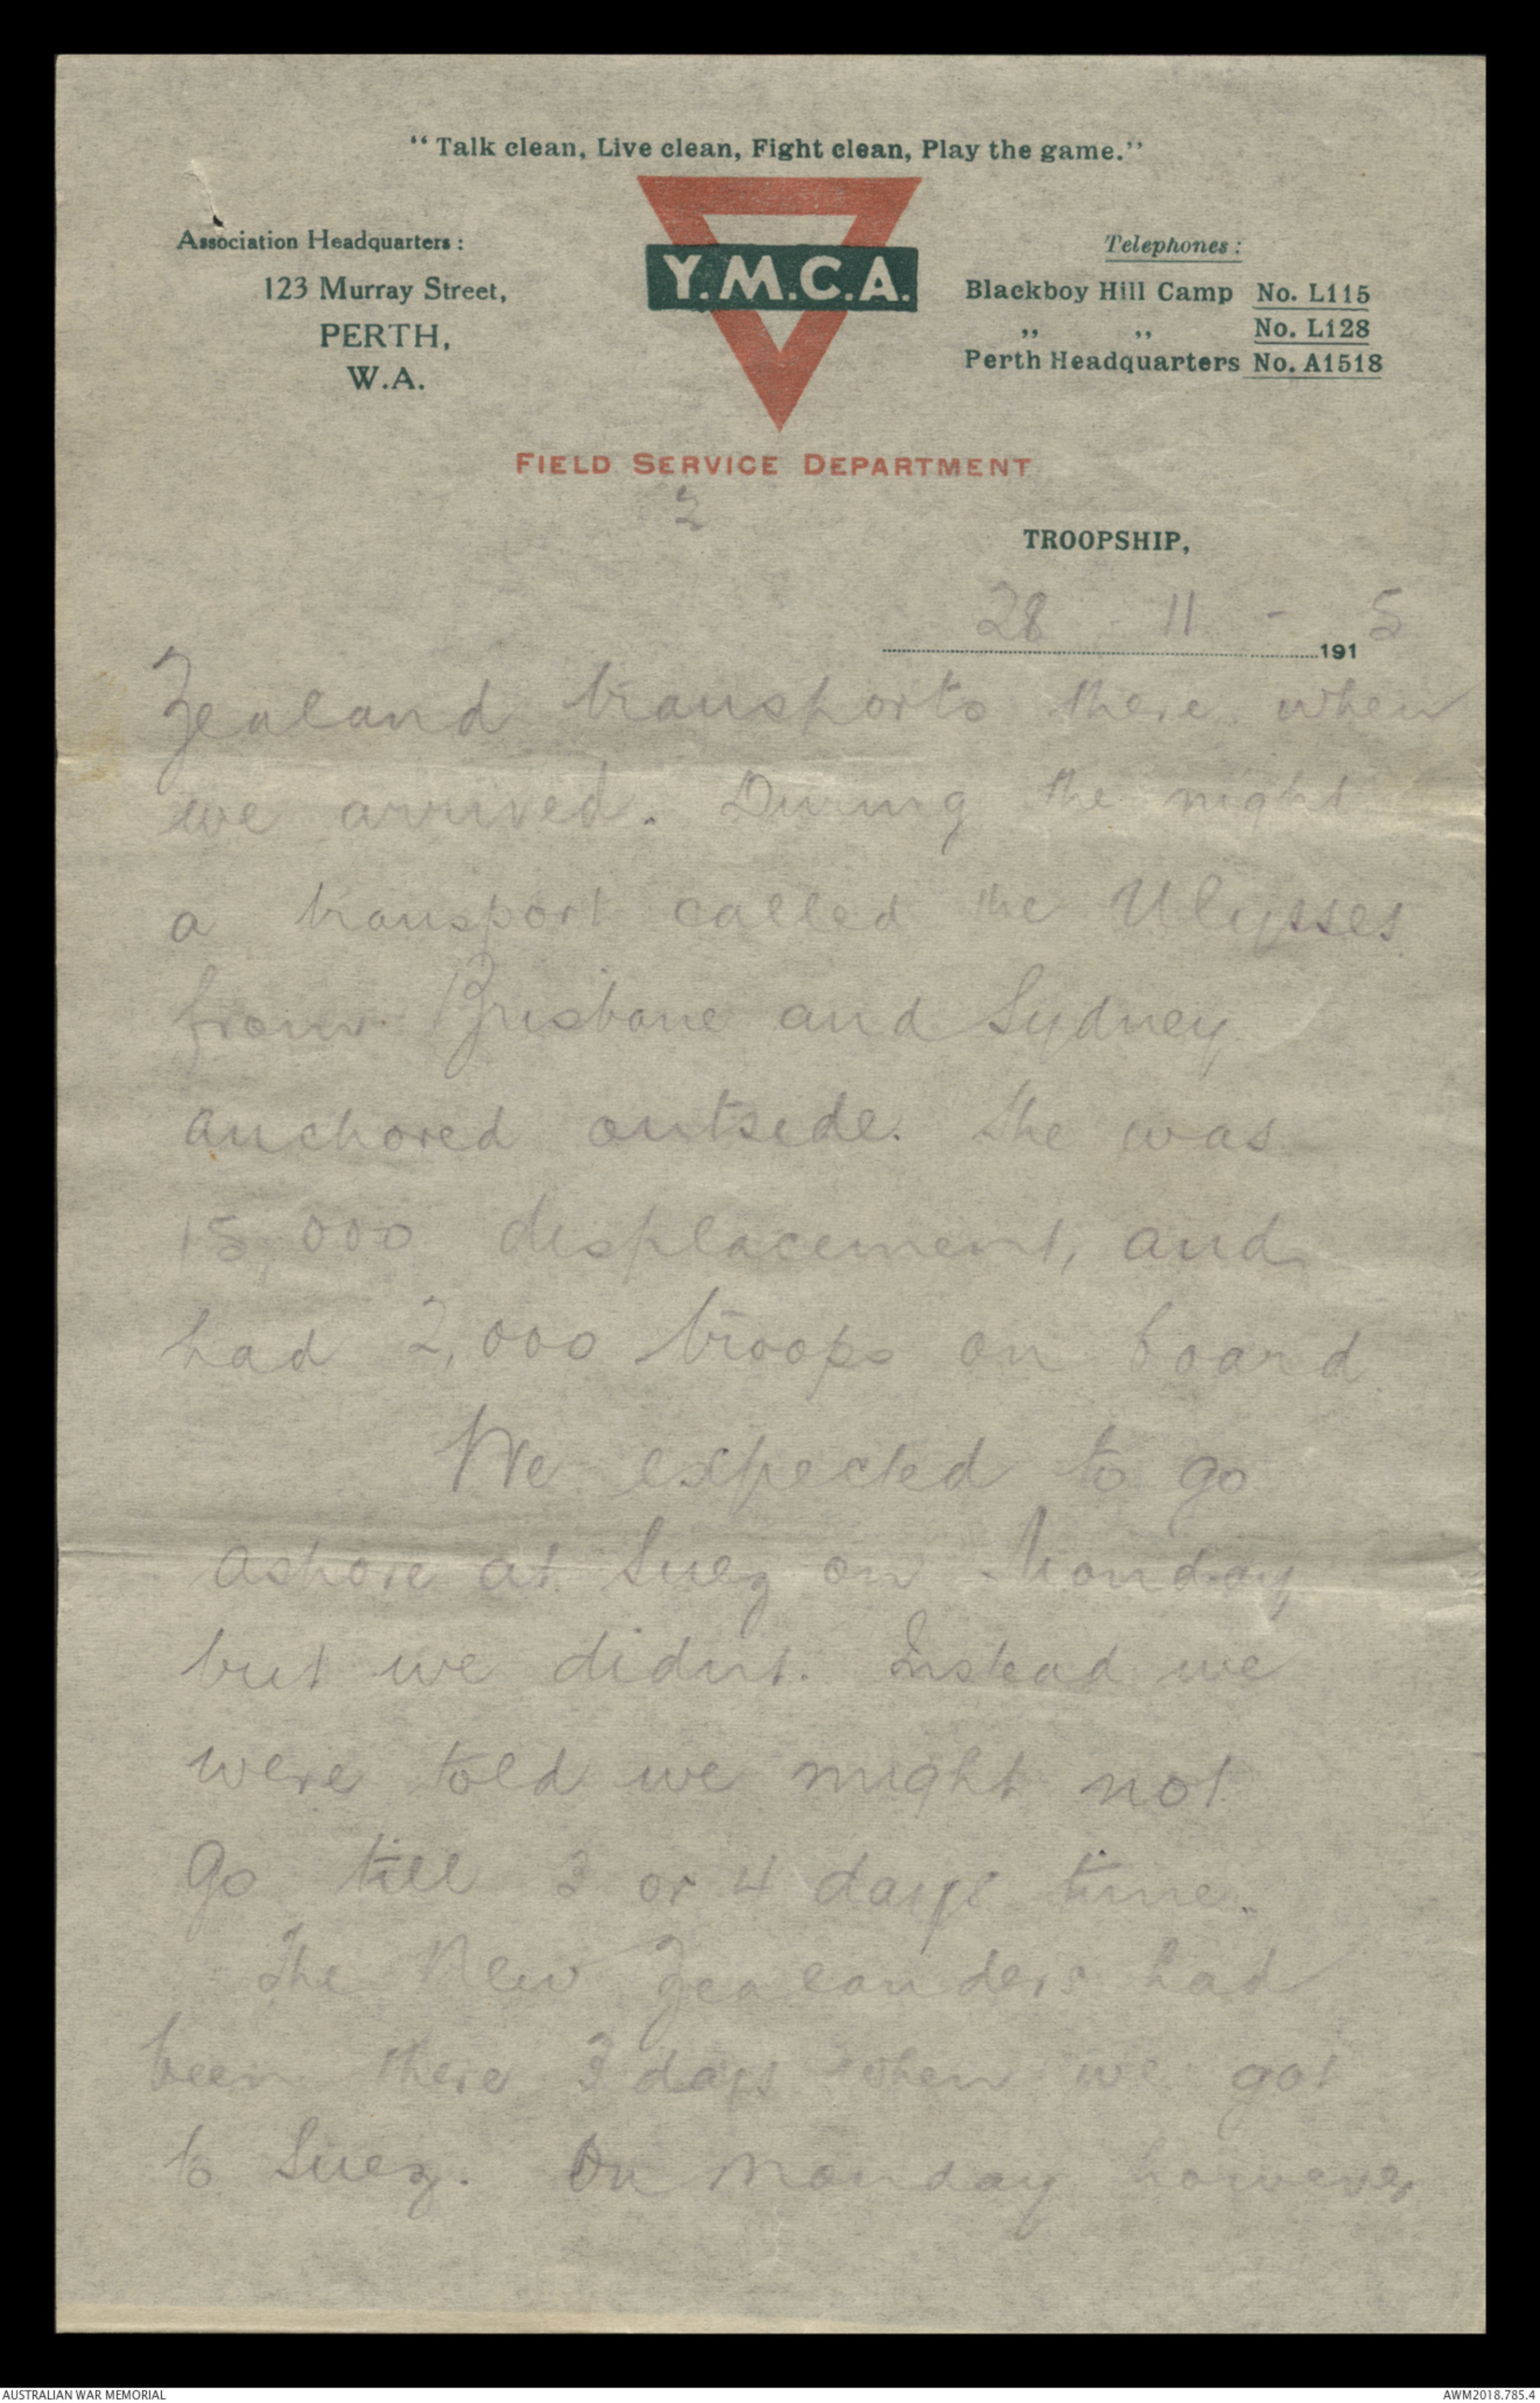 “Talk clean, Live clean, Fight clean, Play the game.”
Association Headquarters :
123 Murray Street,
PERTH,
W.A.
Y.M.C.A.
Telephones :
Blackboy Hill Camp No. L115
„ „ No. L128
Perth Headquarters No. A1518
FIELD SERVICE DEPARTMENT
2
TROOPSHIP,
28 - 11 - 1915
Zealand transports there when
we arrived. During the night
a transport called the Ulysses
from Brisbane and Sydney
anchored outside. She was
15,000 displacement, and
had 2,000 troops on board
We expected to go
ashore at Suez on Monday
but we didnt. Instead we
were told we might not
go till 3 or 4 days time.
The New Zealanders had
been there 3 days when we got
to Suez. On Monday however
AUSTRALIAN WAR MEMORIAL
AWM2018.785.4